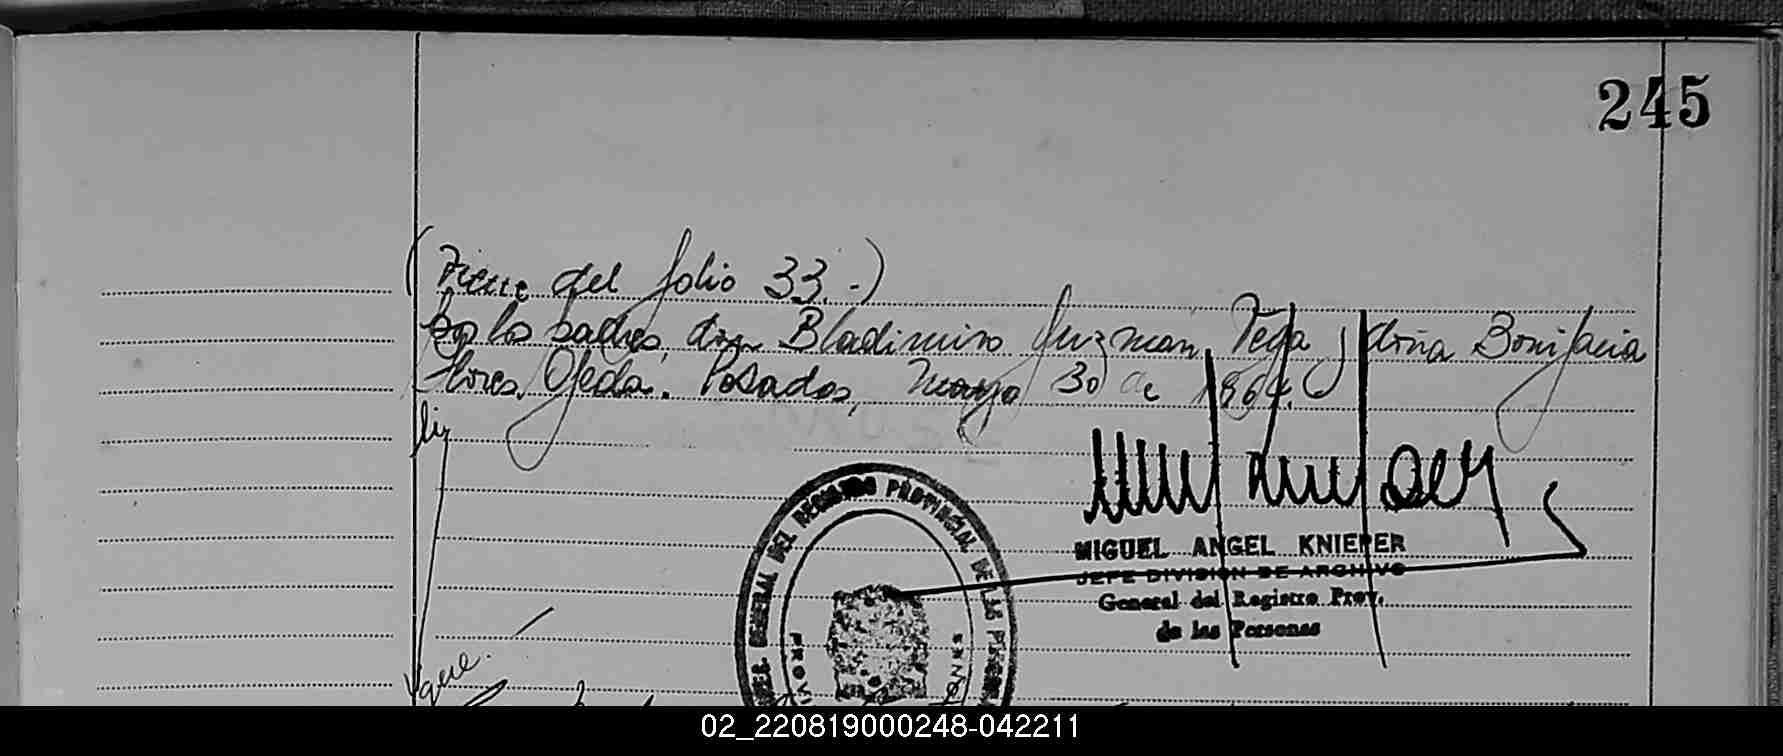 245
(Viene del folio 33.-)
por los padres, don Bladimiro Guzman Vega y doña Bonifacia
Flores Ojeda. Posadas, Mayo 30 de 1964.
MIGUEL ANGEL KNIEPER
JEFE DIVISION DE ARCHIVO
General del Registro Prov.
de las Personas
GENERAL DEL REGISTRO PROVINCIAL DE LAS PERSONA
02_220819000248-042211